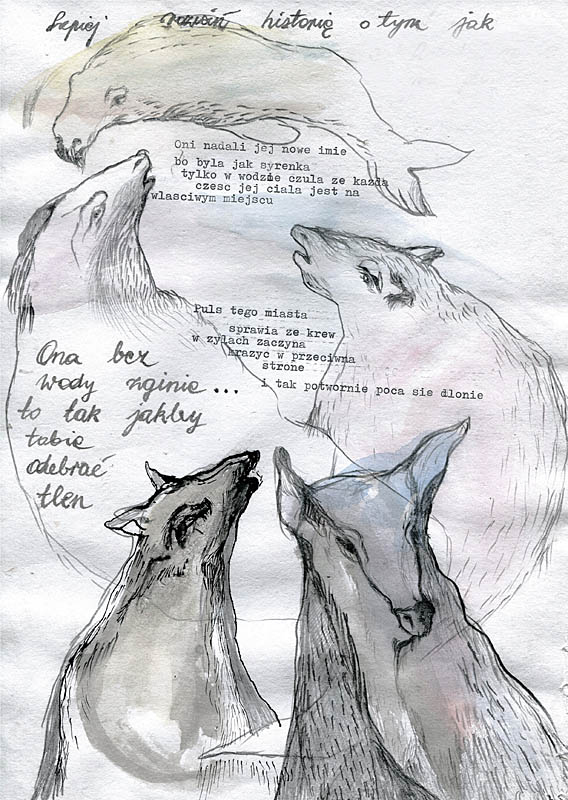 Lepiej mówić historię o tym jak
Oni nadali jej nowe imie
bo byla jak syrenka
tylko w wodzie czula ze kazda
czesc jej ciala jest na
wlasciwym miejscu
Puls tego miasta
sprawia ze krew
w zylach zaczyna
krazyc w przeciwna
strone
i tak potwornie poca sie dlonie
Ona bez
wody zginie ...
to tak jakby
tobie
odebrać
tlen